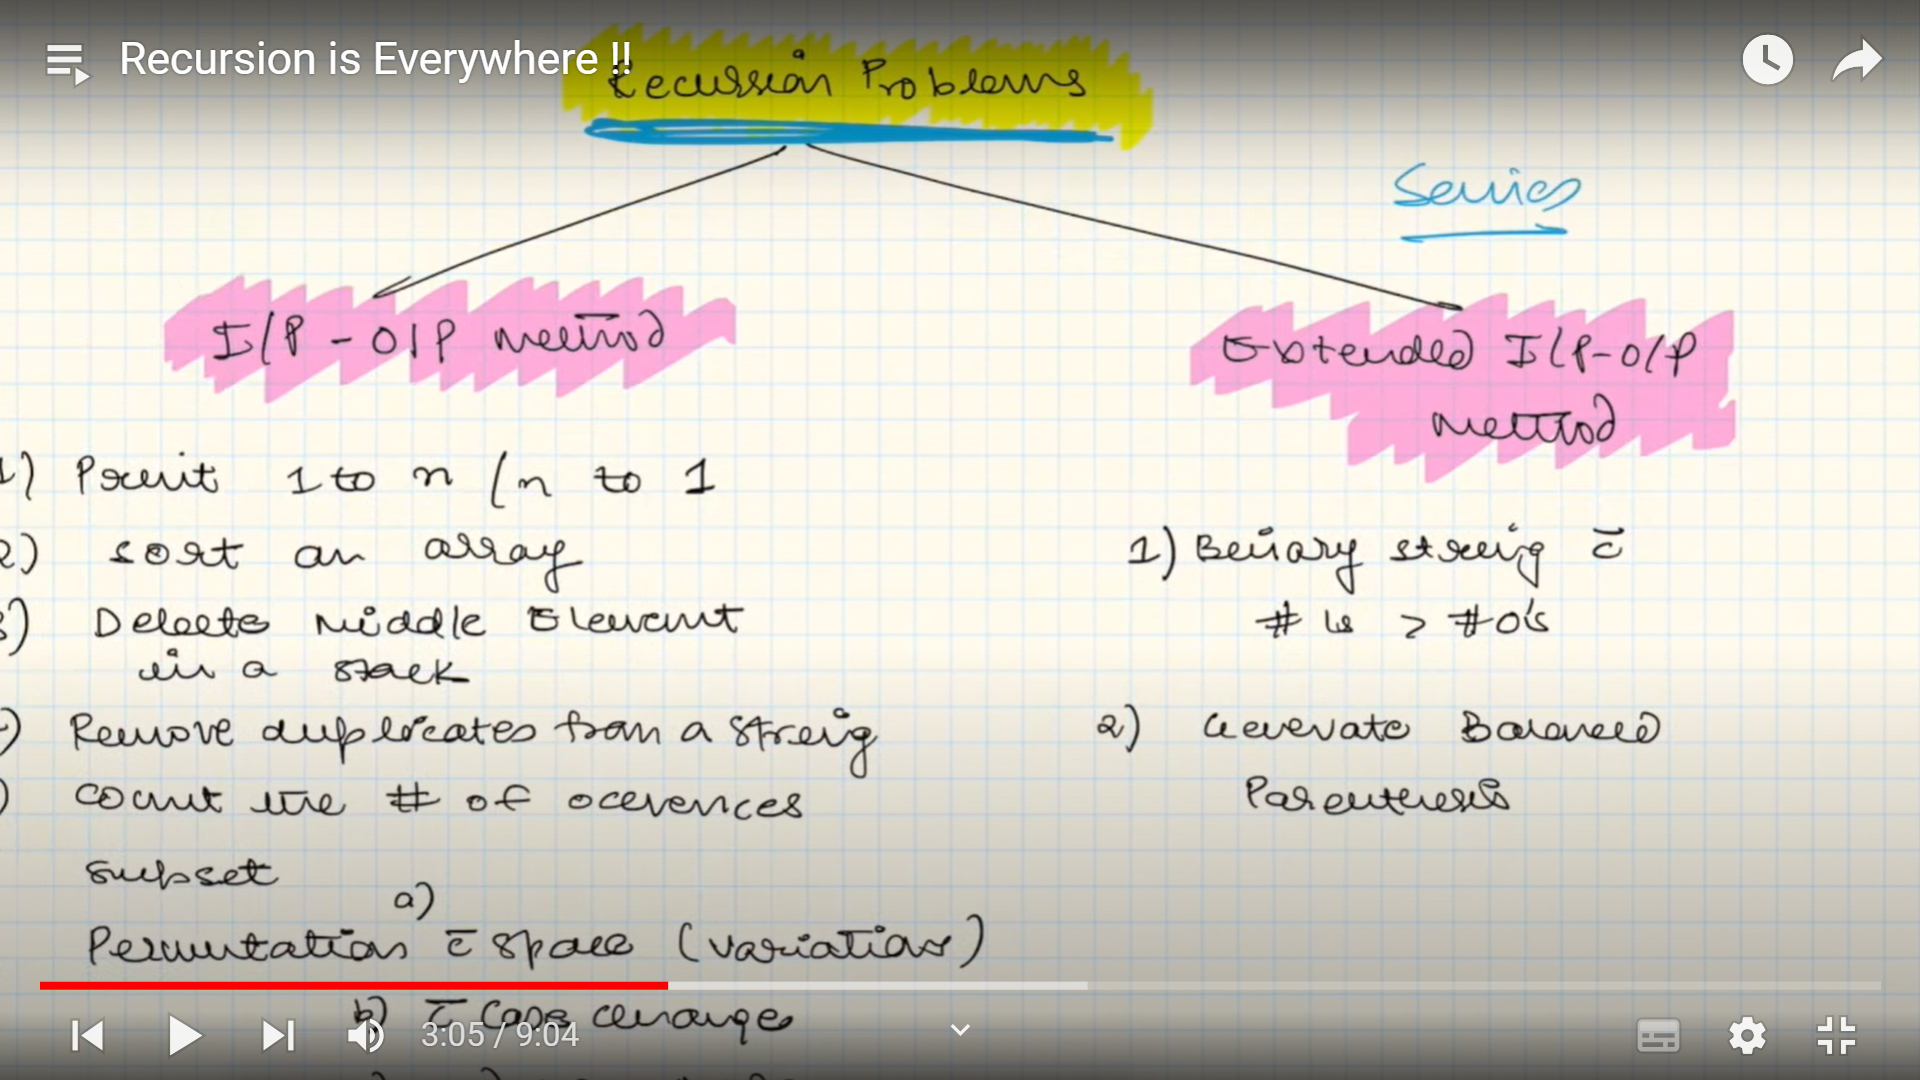 Recursion is Everywhere !!
Recussion Problems
Series
I/P - O/P method
Extended I/P-O/P
method
1) Print 1 to n / n to 1
2) sort an array
3) Delete Middle Element
in a stack
) Remove duplicates from a string
) count the # of ocurences
subset
a)
Permutation c̄ space (variation)
b) c̄ Case change
1) Binary string c̄
# 1s > # 0's
2) Generate Balanced
Parenthesis
3:05 / 9:04